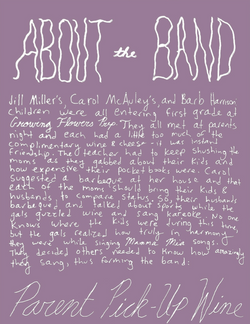 ABOUT the BAND
Jill Miller's, Carol McAuley's, and Barb Harrison
children were all entering first grade at
Growing Flowers Prep. They all met at parents
night and each had a little too much of the
complimentary wine & cheese - it was instant
friendship. The teacher had to keep shushing the
moms as they gabbed about their kids and
how expensive their pocket books were. Carol
suggested a barbeque at her house and that
each of the moms should bring their kids &
husbands, to compare status. So, their husbands
barbequed and talked about sports while the
gals guzzled wine and sang karaoke. No one
knows where the kids were during this time,
but the gals realized how truly in harmony
they were while singing Mamma Mia songs.
They decided others needed to know how amazing
they sang, thus forming the band:
Parent Pick-Up Wine